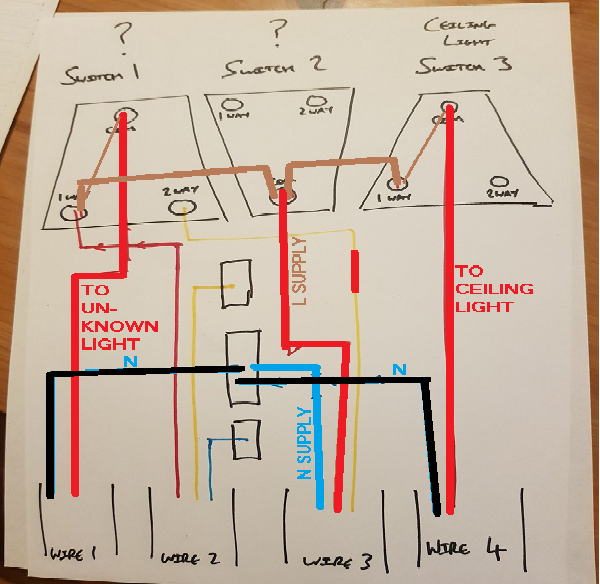 ? ? CEILING
LIGHT
SWITCH 1 SWITCH 2 SWITCH 3
COM 1 WAY 2 WAY COM
1 WAY 2 WAY COM 1 WAY 2 WAY
L SUPPLY
TO
UN-
KNOWN
LIGHT
TO
CEILING
LIGHT
N N
N SUPPLY
WIRE 1 WIRE 2 WIRE 3 WIRE 4